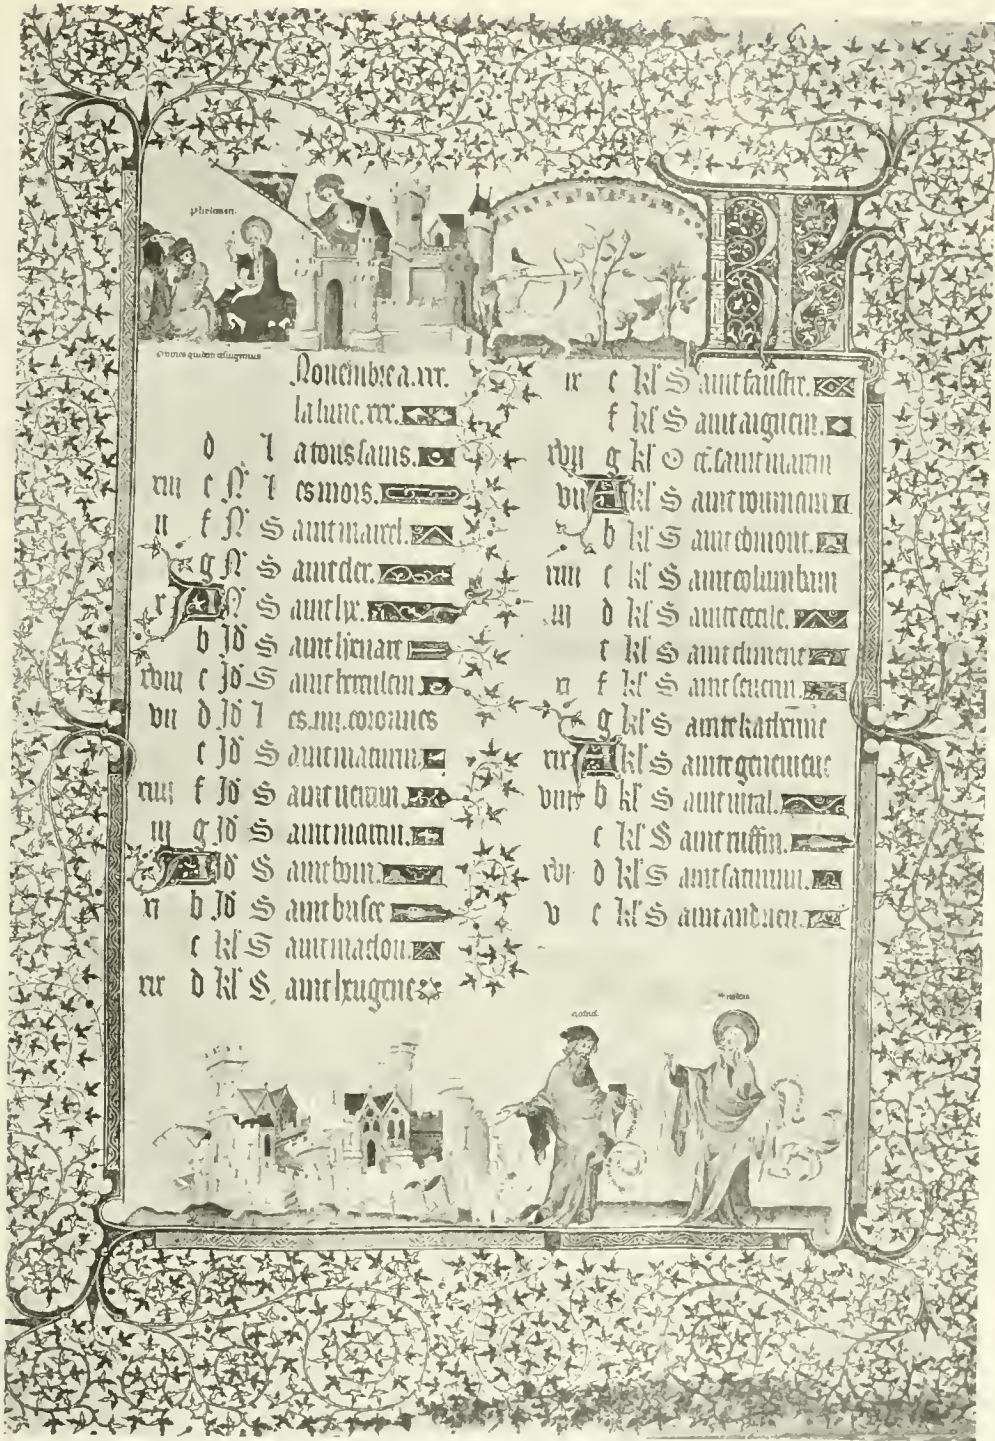 phelemon.
Nouembre a .xxx.
la lune .xxx.
d l a touslains.
xiii e N l es mors.
ii f N S aint marcel.
g N S aint cler.
x A N S aint
b Id S aint lienart
xviii c Id S aint herculein
vii d Id l es .iiii. coronnes
e Id S aint maturin
f Id S aint
iii g Id S aint martin.
A Id S aint
xi b Id S aint
c kl S aint maclou.
xix d kl S aint eugene
e kl S aint faustin.
f kl S aint aignien.
g kl O ct. saint martin
A kl S aint roumain
b kl S aint edmont.
c kl S aint columbain
iii d kl S ainte cecile.
e kl S aint climent
xi f kl S aint seuerin
g kl S ainte katherine
xix A kl S ainte geneuieue
b kl S aint vital.
c kl S aint ruffin.
xvi d kl S aint saturnin.
v e kl S aint andrieu.